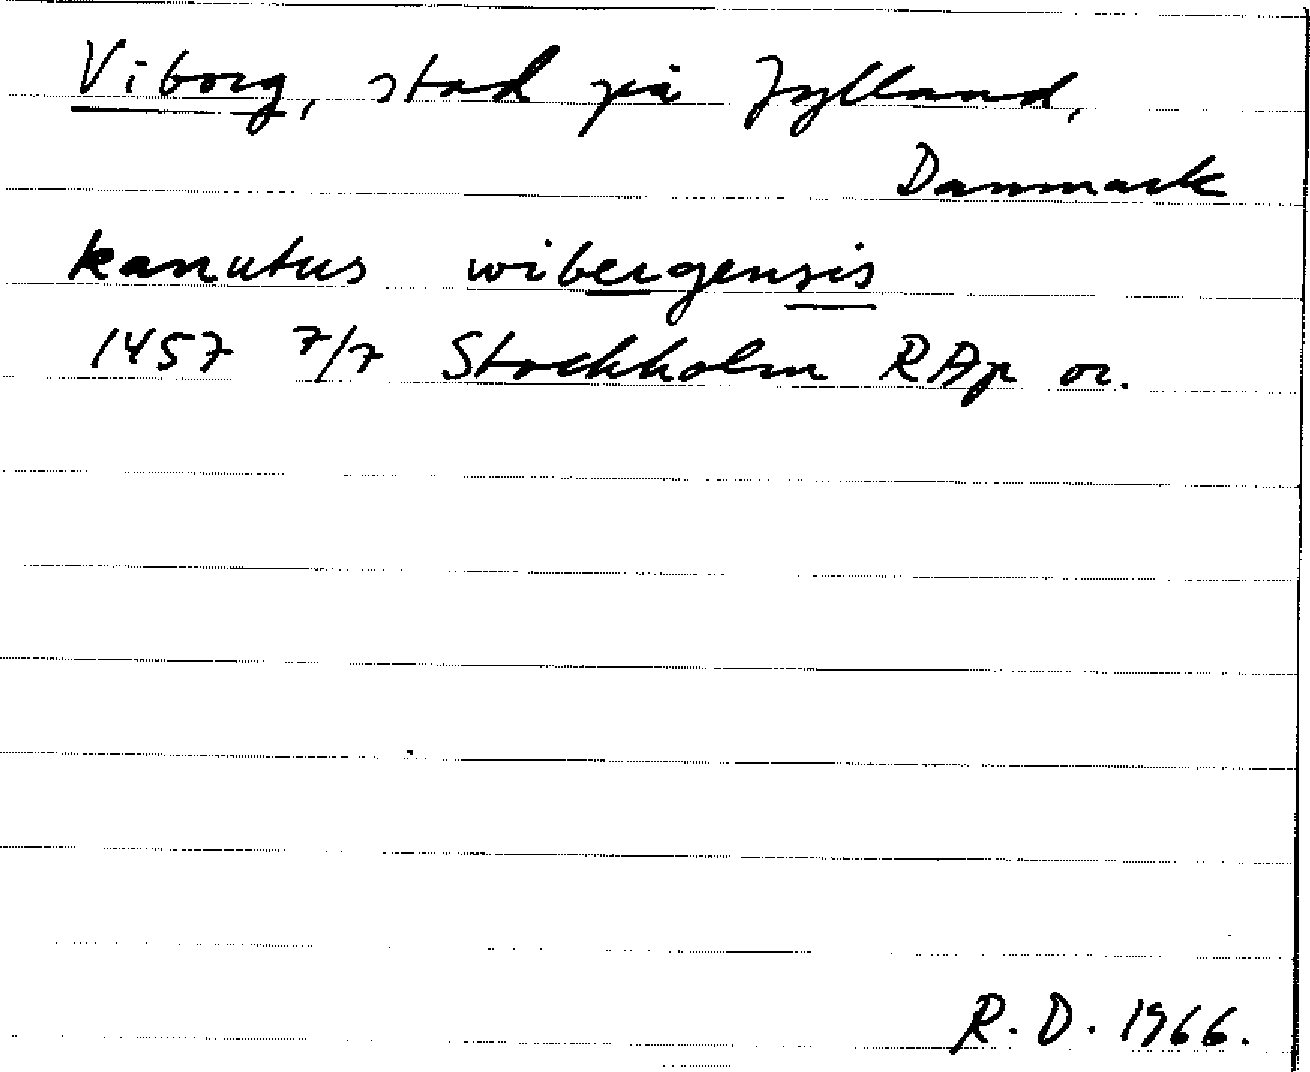 Viborg, stad på Jylland,
Danmark
kanutus wibergensis
1457 7/7 Stockholm RAp or.
R. D. 1966.